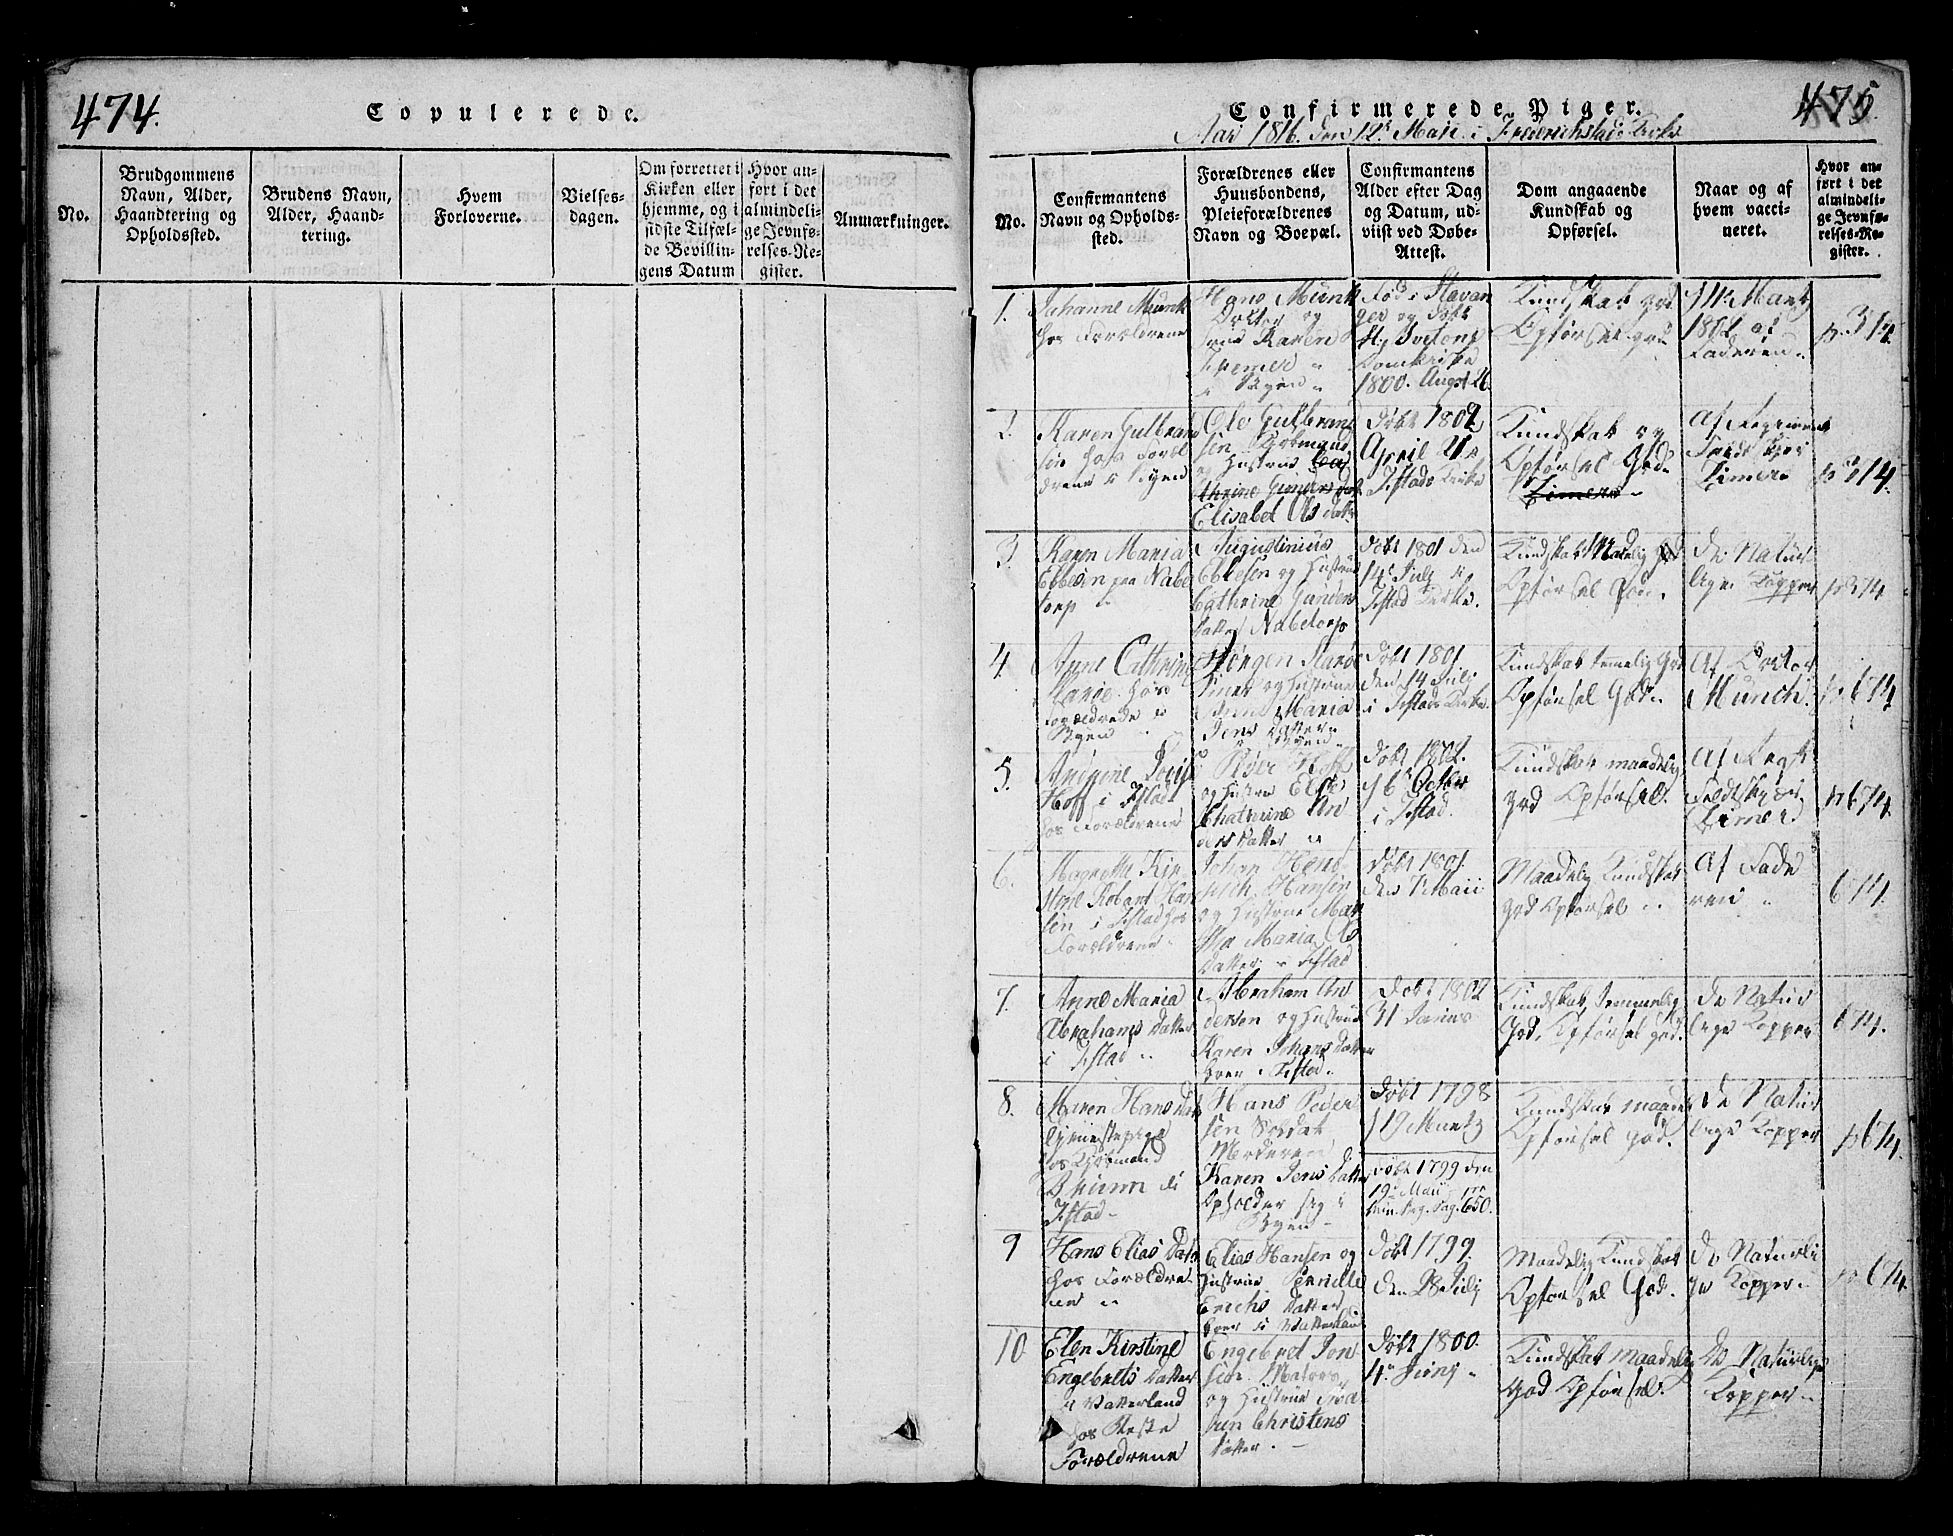 474.
Copulerede.
No.
Brudgommens
Navn, Alder,
Haandtering og
Opholdssted.
Brudens Navn,
Alder, Haand-
tering.
Hvem
Forloverne.
Vielses-
dagen.
Om forrettet i
Kirken eller
hjemme, og i
sidste Tilfæl-
de Bevillin-
gens Datum
Hvor an-
ført i det
almindeli-
ge Jevnfø-
relses-Re-
gister.
Anmærkninger.
475.
Confirmerede Piger.
Aar 1816. den 12te Maii i Friderichstads Kirke
No.
Confirmantens
Navn og Opholds-
sted.
Forældrenes eller
Huusbondens,
Pleieforældrenes
Navn og Boepæl.
Confirmantens
Alder efter Dag
og Datum, ud-
viist ved Døbe-
Attest.
Dom angaaende
Kundskab og
Opførsel.
Naar og af
hvem vacci-
neret.
Hvor an-
ført i det
almindeli-
ge Jevnfø-
relses-Re-
gister.
1.
Johanne Münk
hos Forældrene
Hans Münk
Doctor og
Karen
Byen
Fød i Stavan
ger og døbt
Domkirke
1800. Augst 26.
Kundskab god
Opførsel god
1812 af
Faderen
p. 314
2.
Karen Gulbrand
sen hos Foræl
drene i Byen
Ole Gulbrand
sen
og Hustrue Ca
thrine Gunders dat
Elisabet Ols datt
Døbt 1802
April
Fstads Kirke
Kundskab og
Opførsel God
Zimers
Af Regiments
Feldtskjær
Zimers
p 314.
3.
Karen Maria
Ebbesen paa Nabe
torp
Augustinius
Ebbesen og Hustrue
Cathrine Gunders
datter Nabetorp
Døbt 1801 den
14 July i
Fstad Kirke.
Kundskab Maadelig God
Opførsel God.
De Natur
lige Kopper
p 314
4.
Anne Cathrine
hos
Forældrene i
Byen
Jørgen
og Hustrue
Anne Maria
Jens datter
Byen
Døbt 1801
den 14 July
i Fstads Kirke
Kundskab temmelig God
Opførsel God.
Af Doctor
Münch.
p. 674
5.
Hoff i Fstad
hos Forældrene
Peder Hoff
og Hustrue Else
Chatrine An
ders datter
Døbt 1802.
6 October
i Fstad.
Kundskab maadelig
god Opførsel.
Af Regts
Feldtskjær
Zimers
p 674.
6.
Kir
stine
sen i Fstad hos
Forældrene
Johan Hend
rich Hansen
og Hustrue Mar
tha Maria Ols
datter i Fstad
Døbt 1801.
den 7 Maii
Maadelig Kundskab
god Opførsel
Af Fade
ren
674.
7.
Anne Maria
Abrahams datter
i Fstad
Abraham An
dersen og Hustrue
Karen Johans datter
boer i Fstad.
Døbt 1802
31 Janius
Kundskab temmelig
God, Opførsel god.
De Natur
lige Kopper
674.
8.
Maren Hans dat
tjenestepige
hos Kjøbmand
i
Fstad
Hans Peder
sen Soldat
Moderen
Karen Jens datter
Opholder sig i
Byen
Døbt 1798
19 Martz
Døbt 1799 den
19 Maii
Pag. 650.
Kundskab maadel
Opførsel god.
De Natur
lige Kopper
p 674.
9
Hans Elias datt
hos Forældre
ne
Elias Hansen og
Hustrue Pernille
Erichs datter
boer i Vatterland
Døbt 1799.
den 28 July
Maadelig Kundskab
Opførsel God.
De Naturli
ge Kopper
p 674.
10
Elen Kirstine
Engebrets datter
i Vatterland
hos
Forældrene
Engebret Jon
sen Matros
og Hustrue
Christens
datter.
Døbt 1800.
4 Junj
Kundskab maadelig
God Opførsel.
De Naturlige
Kopper